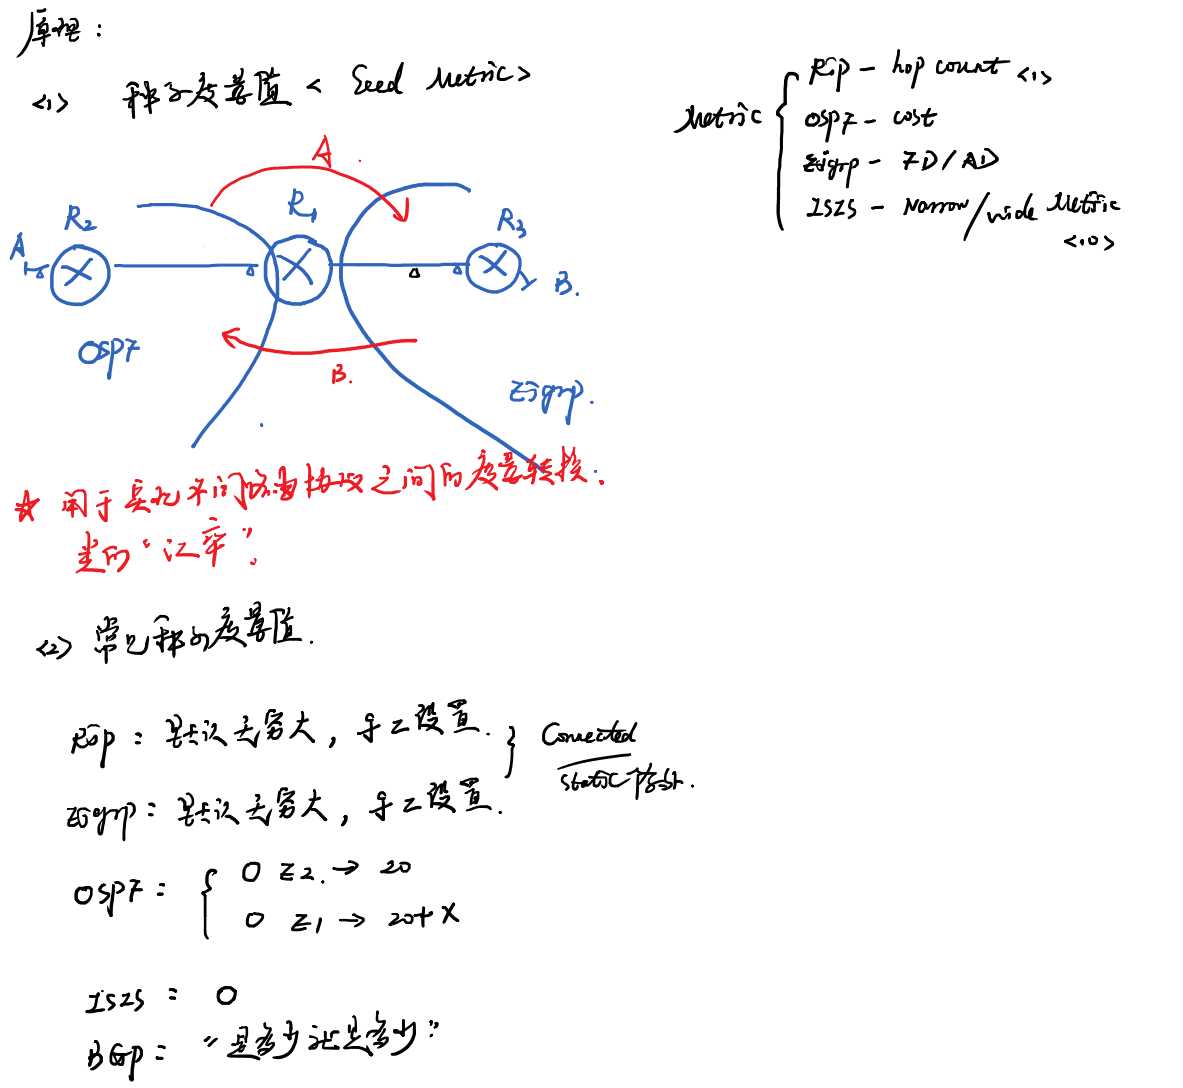 原理：
<1> 种子度量值 < Seed Metric>
Metric
Rip - hop count <1>
OSPF - cost
Eigrp - FD/AD
ISIS - Narrow/wide Metric
<10>
A
R2
R1
R3
A
B.
OSPF
B.
Eigrp.
☆ 用于实现不同路由协议之间的度量转换.
类似“汇率”.
<2> 常见种子度量值.
Rip : 默认无穷大, 手工设置.
Eigrp : 默认无穷大, 手工设置.
Connected
static 除外.
OSPF :
O E2. → 20
O E1 → 20+X
ISIS : 0
BGP : “是多少还是多少”